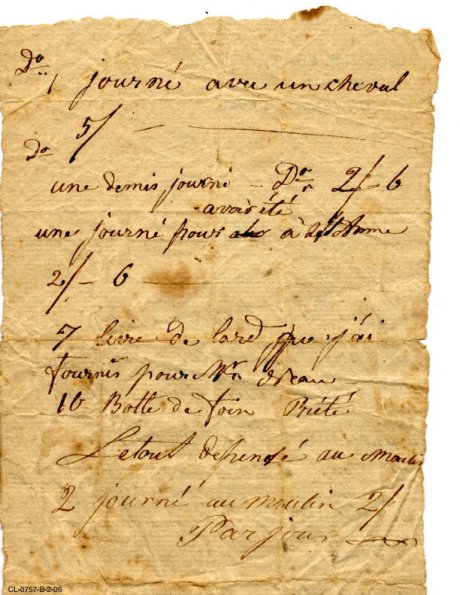 Do
1 journé avec un cheval
5/ —
do
une demis journé — Do 2/ 6
avoir été
une journé pour à
2/ — 6
7 livre de lard que j'ai
fournis pour Mr
10 Botte de foin Prété
Letout depensé au Moulin
2 journé au moulin 2/
Par jour
CL-0757-B-2-06